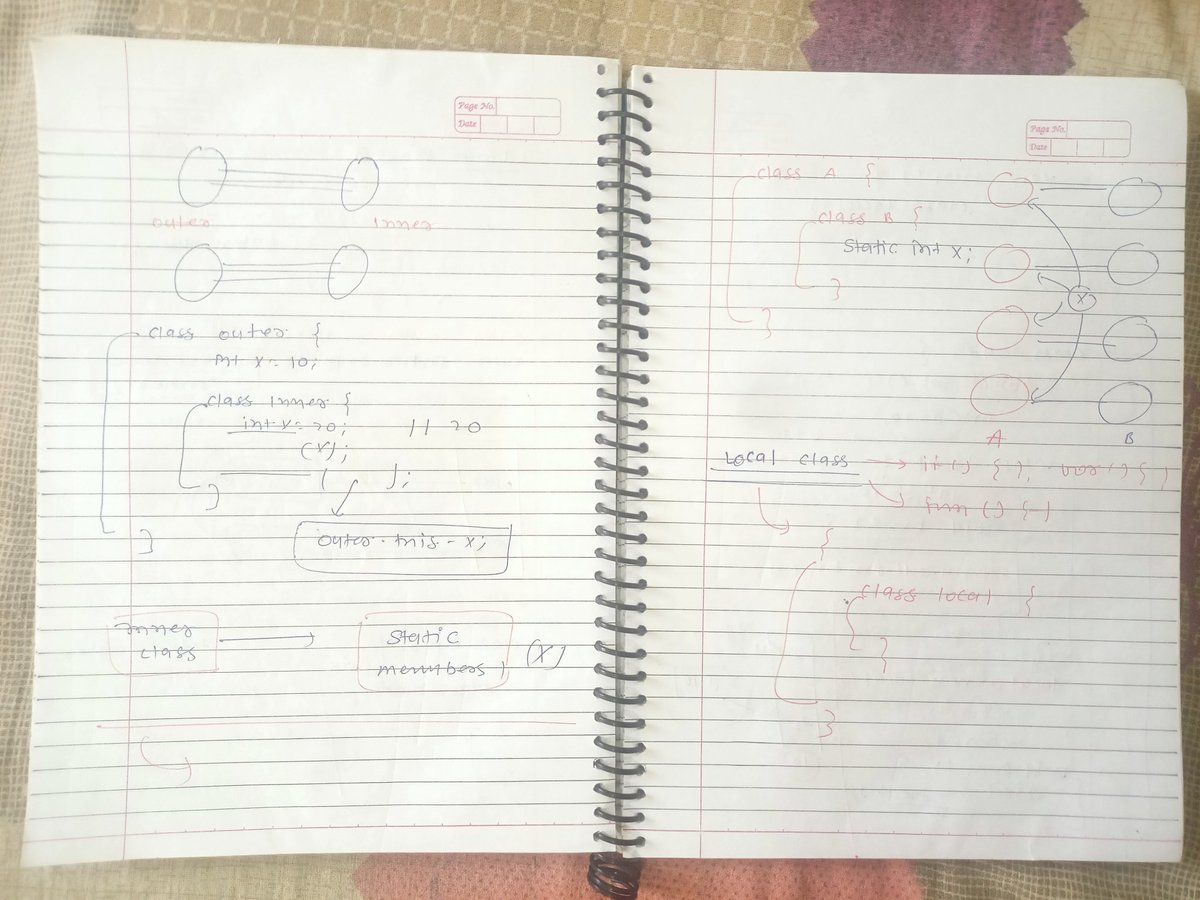 Page No.
Date
outer inner
class outer {
int x = 10;
class inner {
int x = 20; // 20
(x);
( );
}
}
outer . this . x;
inner
class
static
members (X)
Page No.
Date
class A {
class B {
static int x;
}
}
x
A B
local class → if () { },
fun () { }
{
class local {
}
}